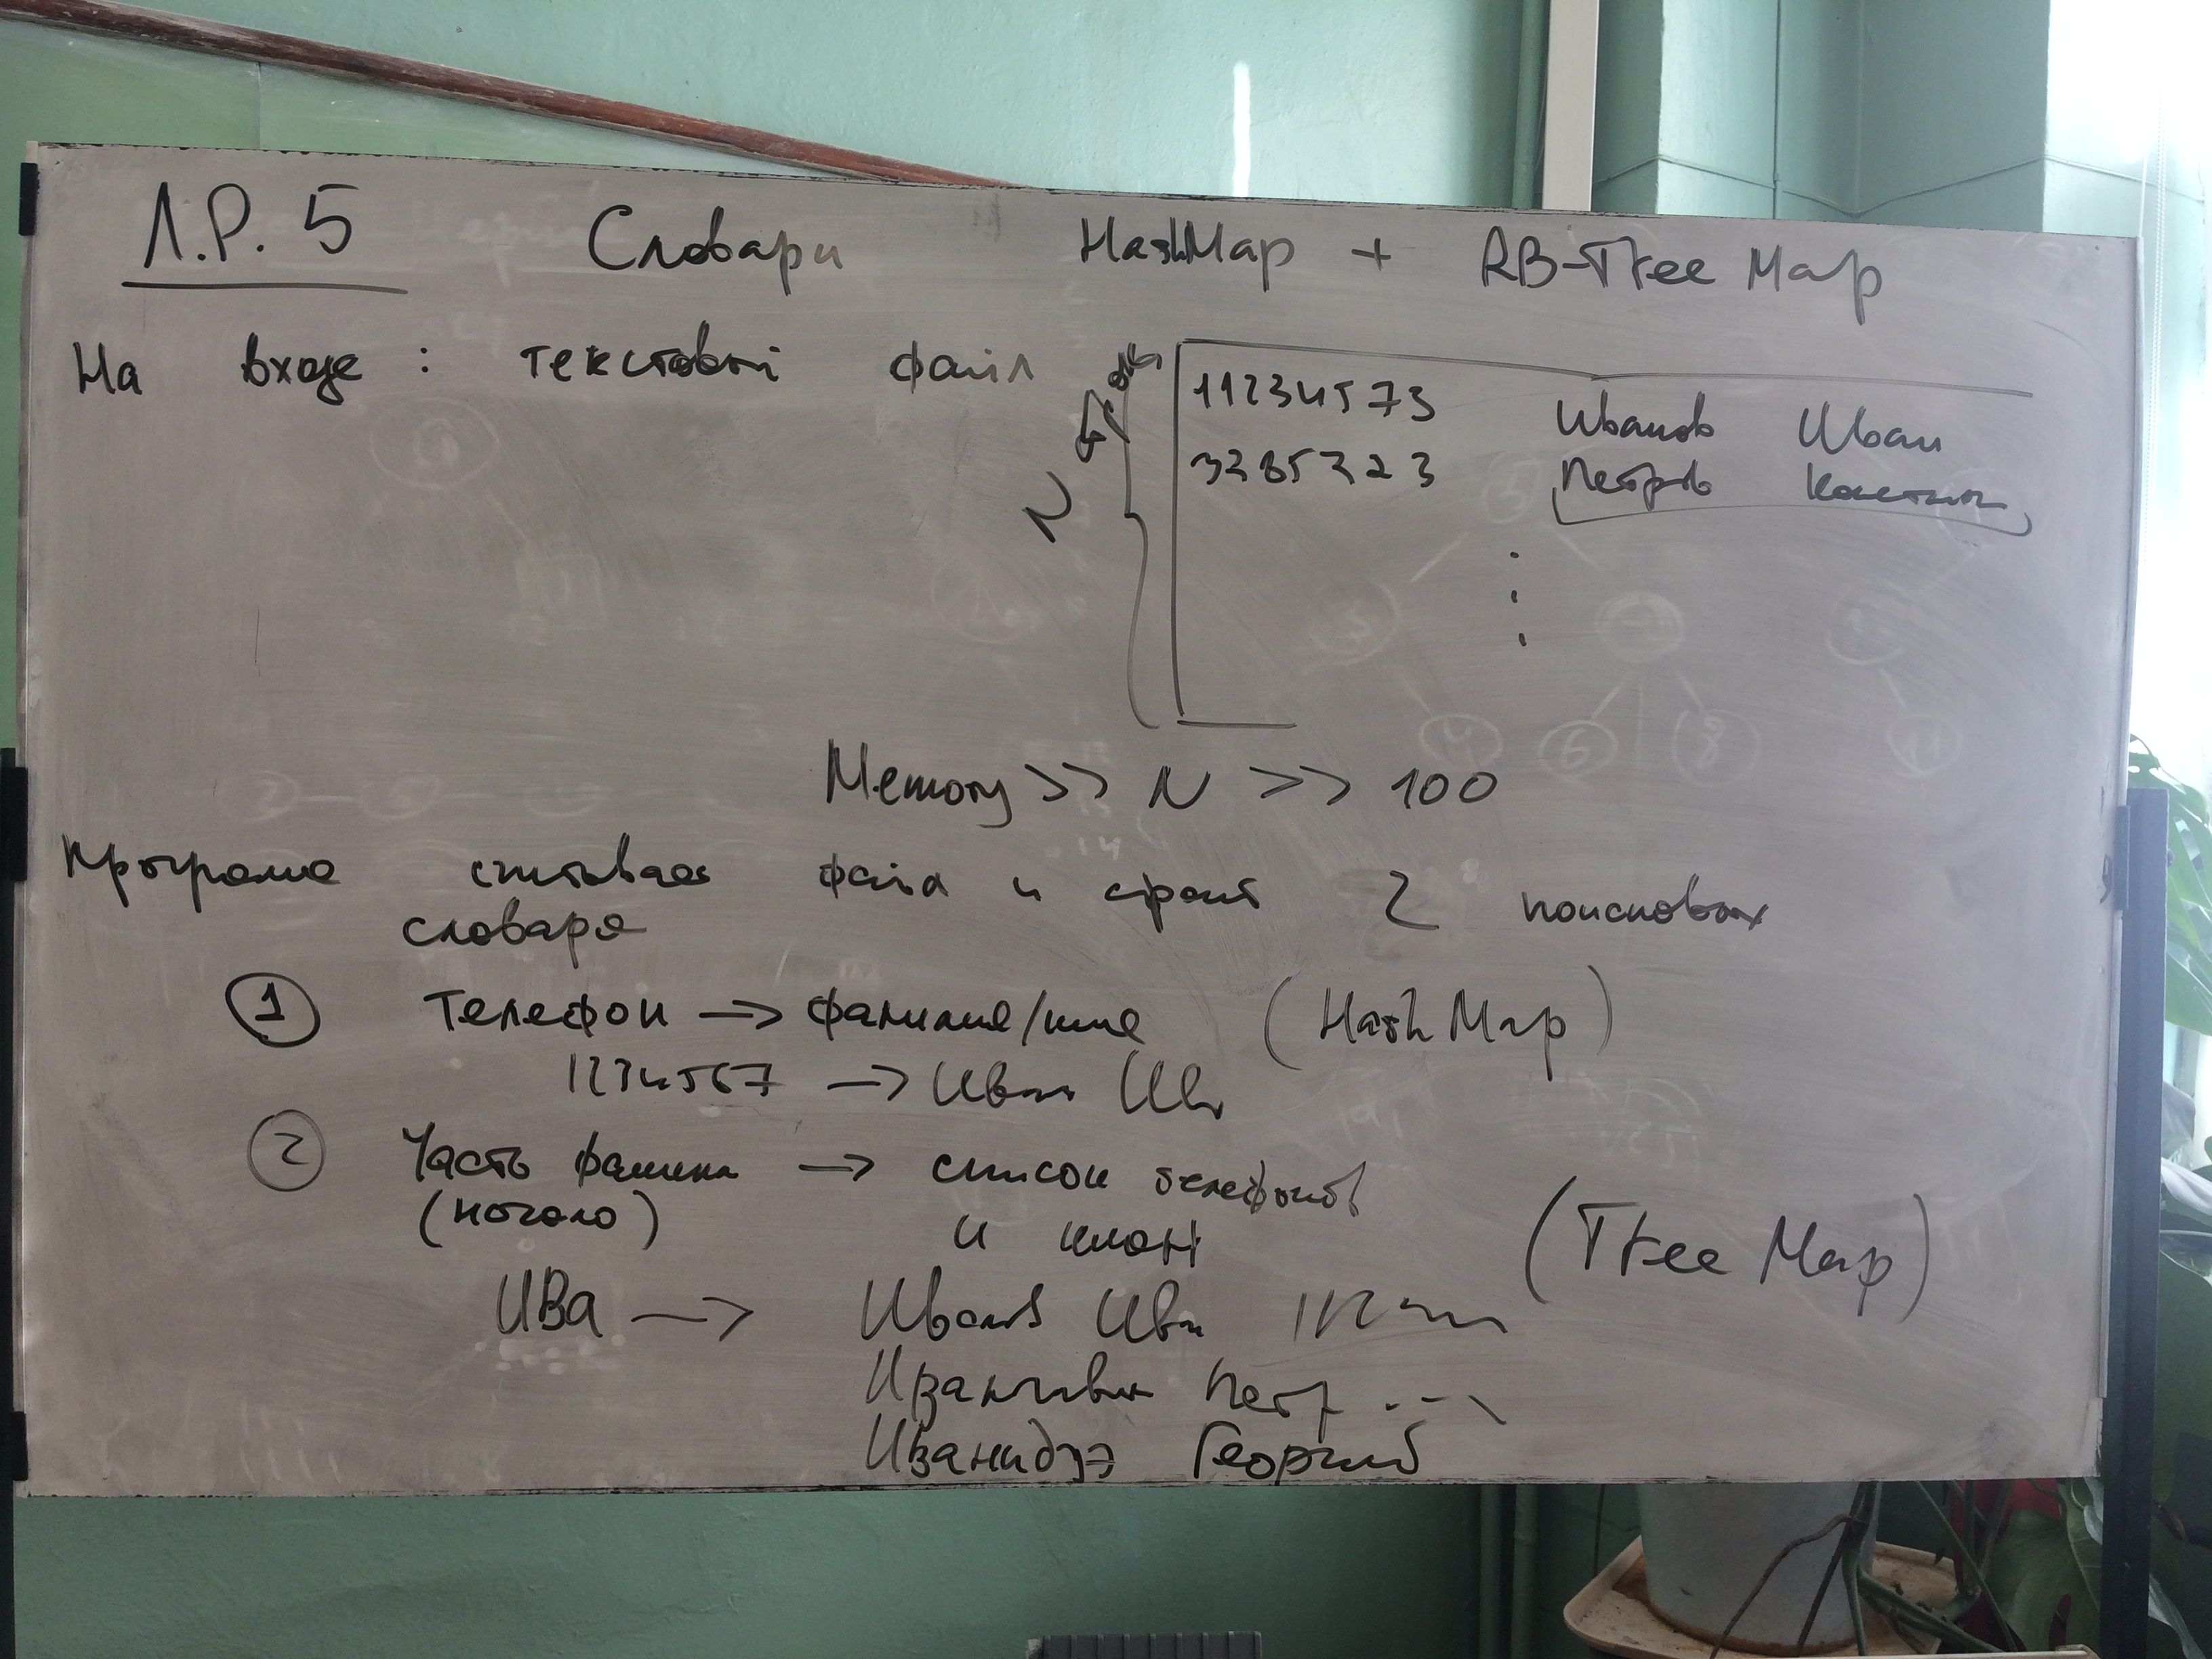 Л.Р. 5 Словари HashMap + RB-Tree Map
На входе : текстовый файл
N строк
11234573 Иванов Иван
3285323 Петров Констант
Memory >> N >> 100
Программа считывает файл и строит 2 поисковых
словаря
1 Телефон —> фамилия/имя (HashMap)
1234567 —> Иван Ив
2 Часть фамилии —> список телефонов
(начало) и имен (Tree Map)
ИВа —> Иванов Иван
Петр ...
Иванидзэ Георгий